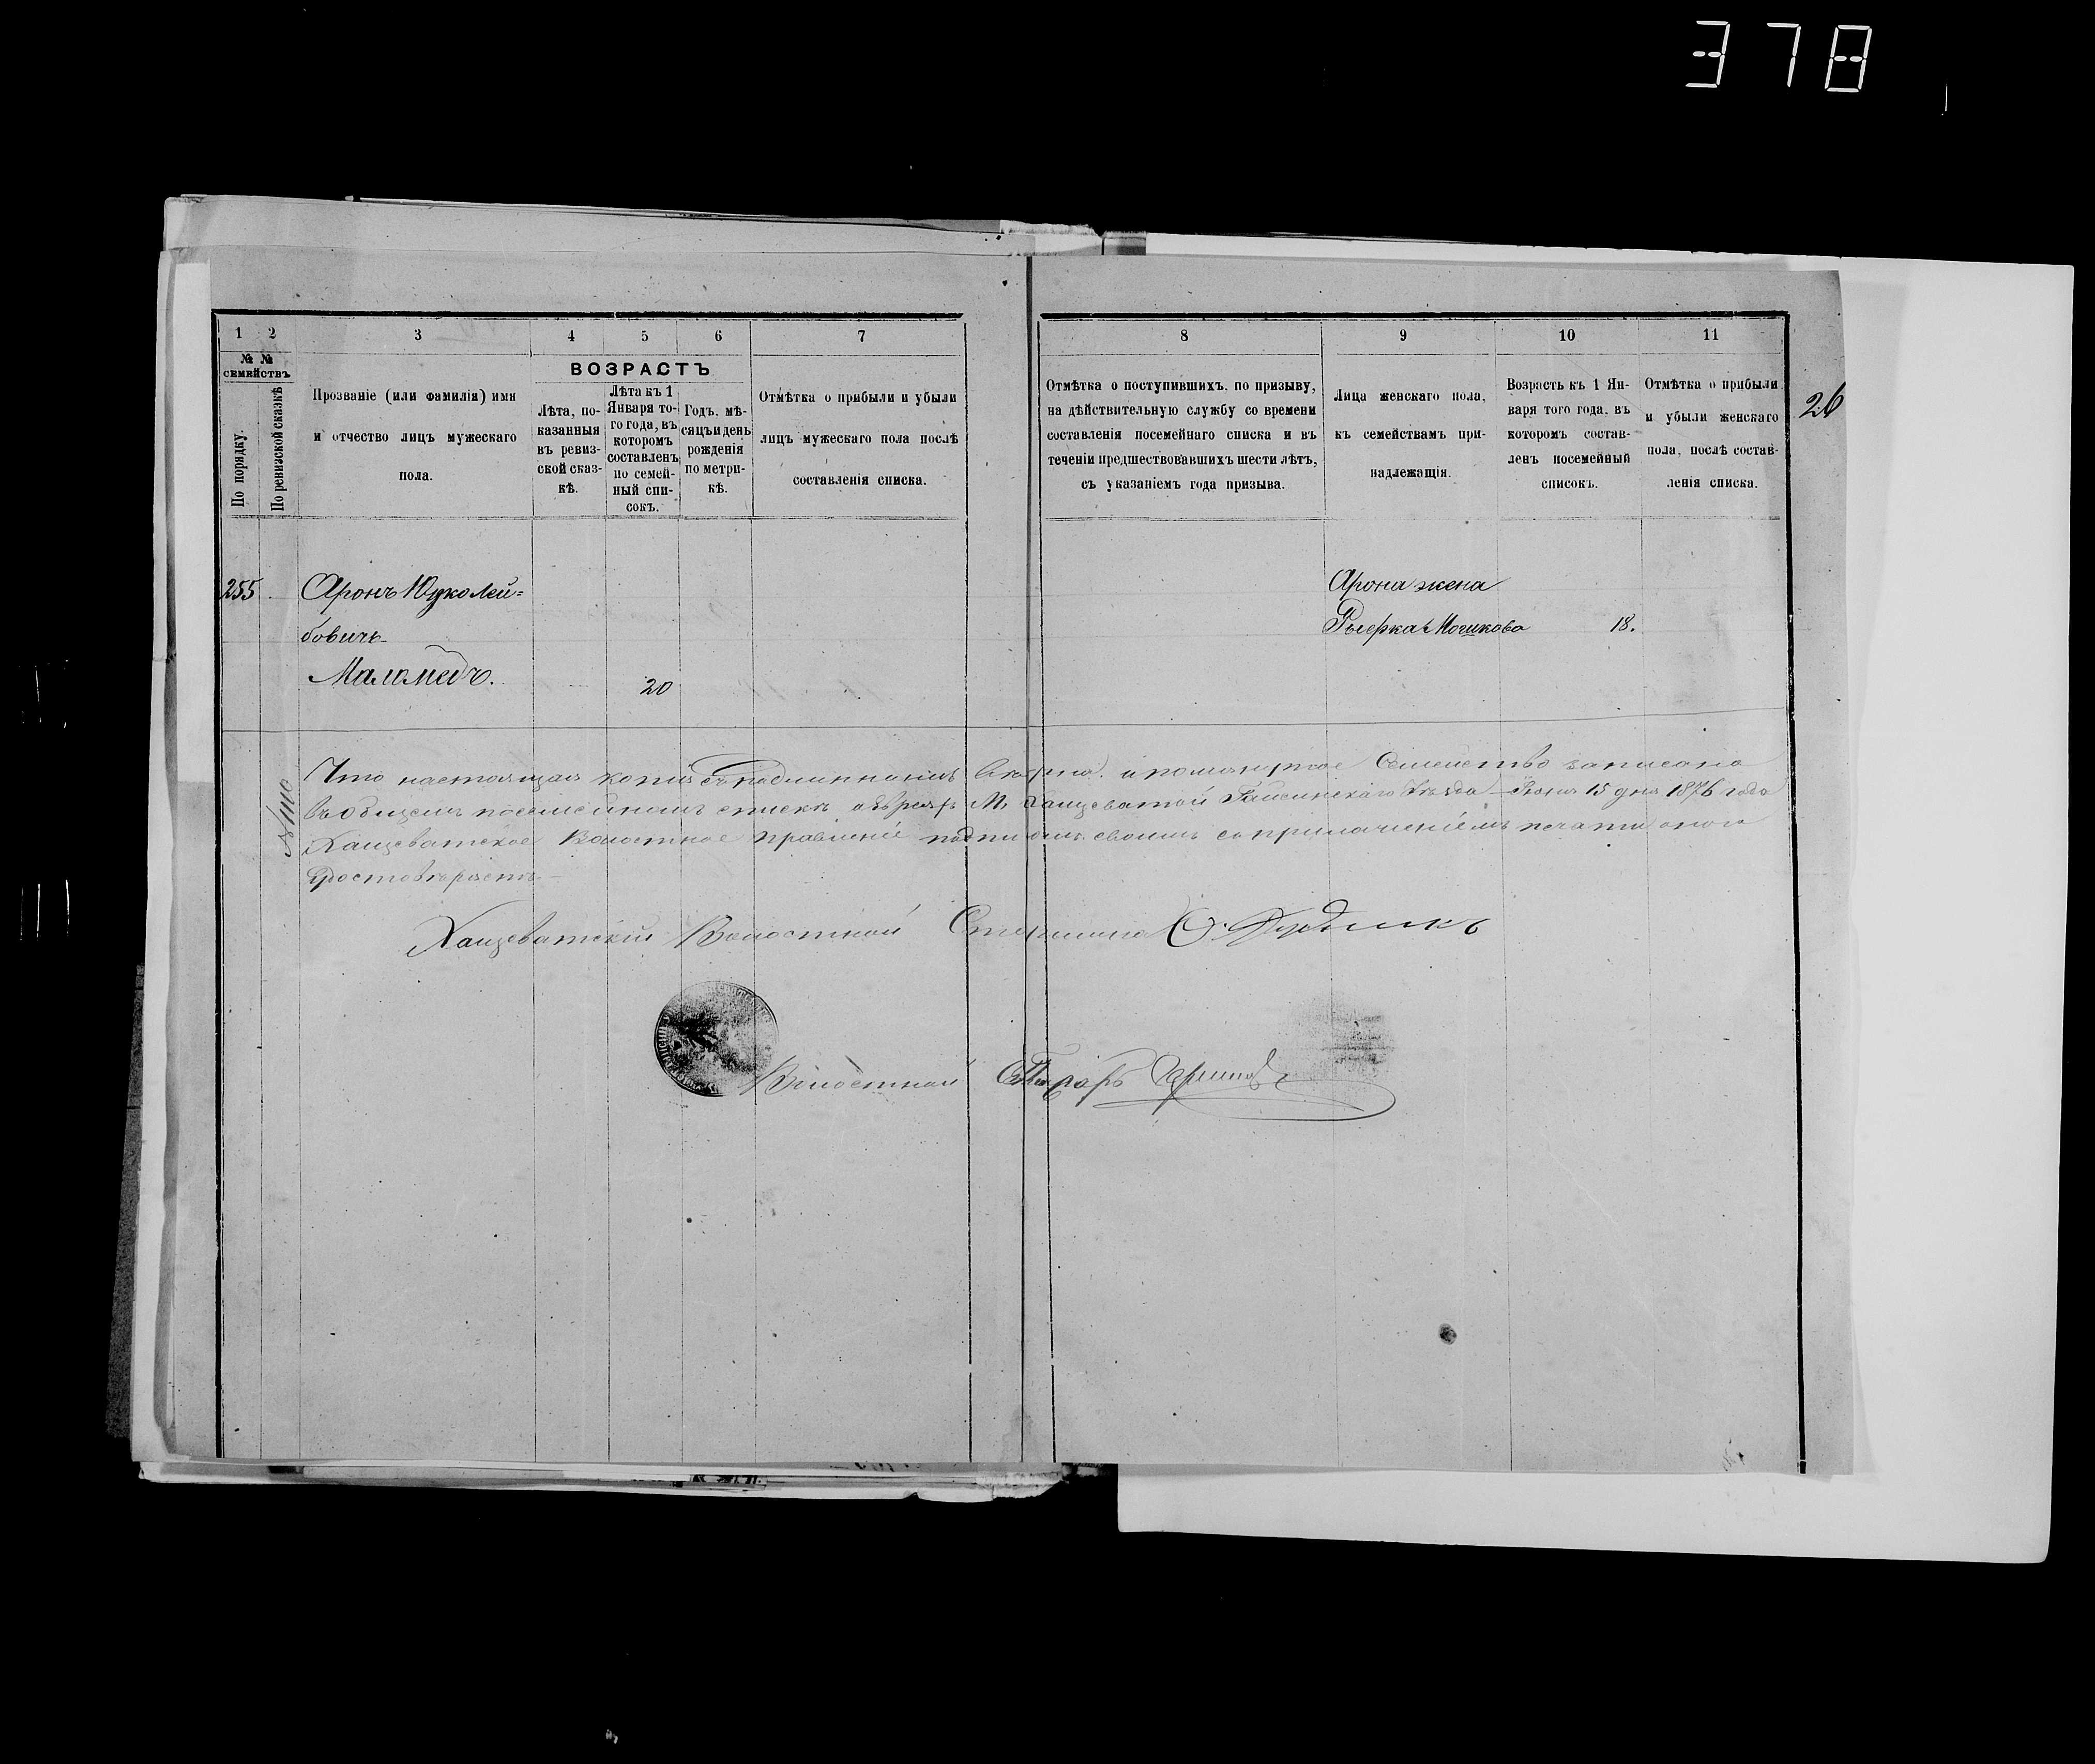 378
1 2 3 4 5 6 7 8 9 10 11
№ №
семействъ
По порядку.
По ревизской сказкѣ
Прозваніе (или фамилія) имя
и отчество лицъ мужескаго
пола.
ВОЗРАСТЪ
Лѣта, по-
казанныя
въ ревиз-
ской сказ-
кѣ.
Лѣта къ 1
Января то-
го года, въ
которомъ
составленъ
по семей-
ный спи-
сокъ.
Годъ, мѣ-
сяцъ и день
рожденія
по метри-
кѣ.
Отмѣтка о прибыли и убыли
лицъ мужескаго пола послѣ
составленія списка.
Отмѣтка о поступившихъ, по призыву,
на дѣйствительную службу со времени
составленія посемейнаго списка и въ
теченіи предшествовавшихъ шести лѣтъ,
съ указаніемъ года призыва.
Лица женскаго пола,
къ семействамъ при-
надлежащія.
Возрасть къ 1 Ян-
варя того года, въ
которомъ состав-
ленъ посемейный
списокъ.
Отмѣтка о прибыли
и убыли женскаго
пола, послѣ состав-
ленія списка.
26
255. Аронъ Юдко Лей=
бовичъ
Маламедъ. 20
Арона жена
Мошкова 18.
Что настоящая копія съ подлиннымъ вѣрна и помянутое Семейство записано
въ общемъ посемейномъ спискѣ евреевъ М. Хащеватой Гайсинскаго Уѣзда Іюня 15 дня 1876 года
Хащеватское Волостное Правленіе подписомъ своимъ съ приложеніемъ печати оной
удостовѣряетъ
Хащеватскій Волостной Старшина
Волостной Писарь